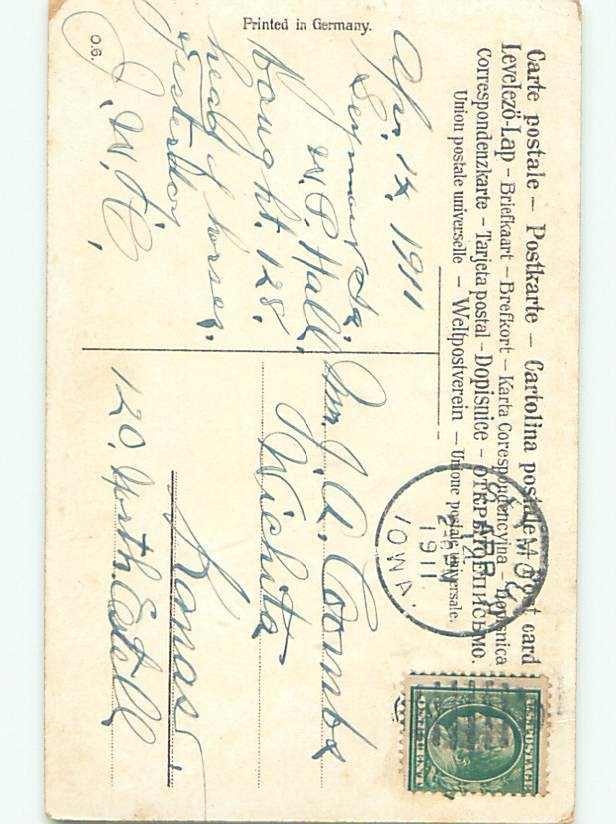 Carte postale – Postkarte – Cartolina postale – Post card
Levelezö-Lap – Briefkaart – Brefkort – Karta Corespondencyina – Dopisnica
Correspondenzkarte – Tarjeta postal – Dopisnice – ОТКРЫТОЕ ПИСЬМО.
Union postale universelle – Weltpostverein – Unione postale universale.
Printed in Germany.
O.6.
Apr. 14, 1911
Seymour Ia.
W. P. Hall,
baught. 128.
head of horses,
yesterdoy
J. W. H,
SEYMOUR
APR
14
2-PM
1911
IOWA.
U.S. POSTAGE
ONE CENT
Mr. J. A. Coombs
Wichita
Kanas,
120. North. Estell